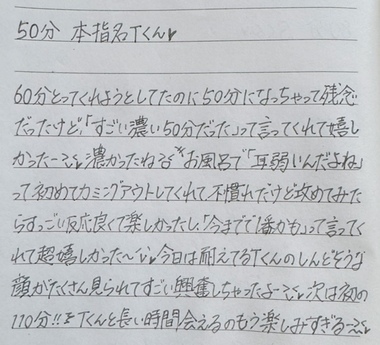 50分 本指名Tくん♥
60分とってくれようとしてたのに50分になっちゃって残念
だったけど、「すごい濃い50分だった」って言ってくれて嬉し
かったー濃かったねえお風呂で「耳弱いんだよね」
って初めてカミングアウトしてくれて、不慣れだけど攻めてみた
らすっごい反応良くて楽しかったし、「今までで1番かも」って言ってく
れて超嬉しかった〜今日は耐えてるTくんのしんどそうな
顔がたくさん見られてすごい興奮しちゃったよー次は初の
110分!!Tくんと長い時間会えるのもう楽しみすぎる〜